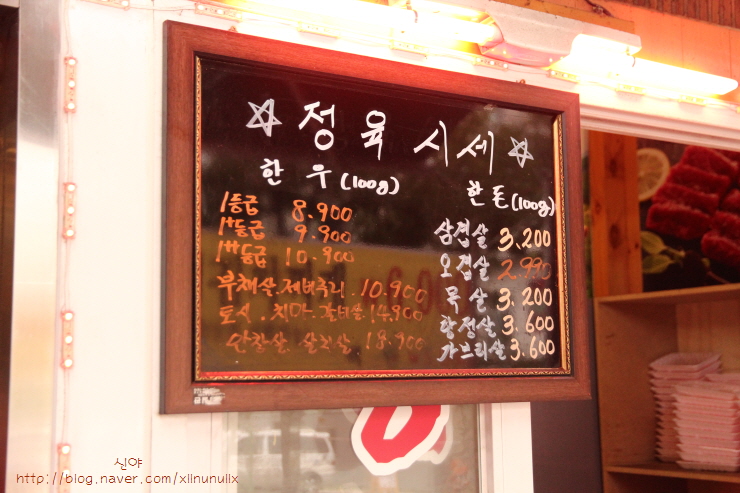 ☆ 정육 시세 ☆
한 우 (100g)
1등급 8.900
1+등급 9.900
1++등급 10.900
부채살.제비추리.10.900
토시.치마.갈비살 14.900
안창살.살치살 18.900
한돈 (100g)
삼겹살 3.200
오겹살 2.990
목살 3.200
항정살 3.600
가브리살 3.600
신야
http://blog.naver.com/xlinunulix